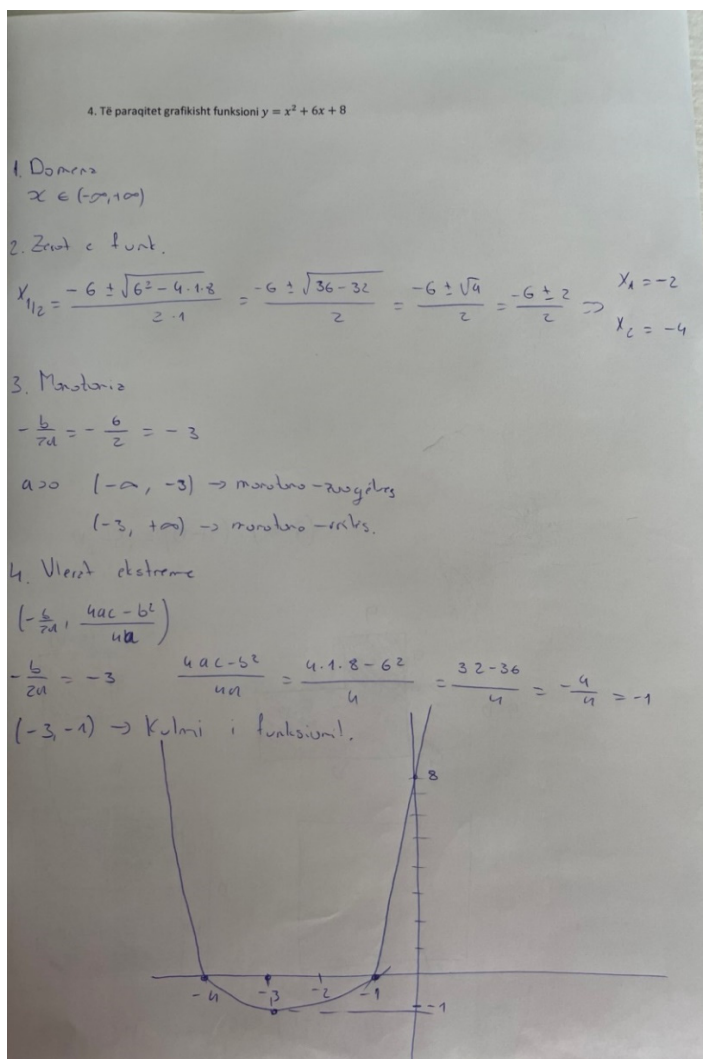 4. Të paraqitet grafikisht funksioni y = x² + 6x + 8
1. Domena
x ∈ (-∞, +∞)
2. Zerot e funk.
x₁/₂ = (-6 ± √(6² - 4·1·8)) / (2·1) = (-6 ± √(36 - 32)) / 2 = (-6 ± √4) / 2 = (-6 ± 2) / 2 => x₁ = -2
x₂ = -4
3. Monotonia
-b/2a = -6/2 = -3
a>0 (-∞, -3) → monotono-zvogëlues
(-3, +∞) → monotono-rritës.
4. Vlerat ekstreme
(-b/2a, (4ac - b²)/4a)
-b/2a = -3 (4ac - b²)/4a = (4·1·8 - 6²)/4 = (32 - 36)/4 = -4/4 = -1
(-3, -1) → Kulmi i funksionit.
8
-4 -3 -2 -1
-1